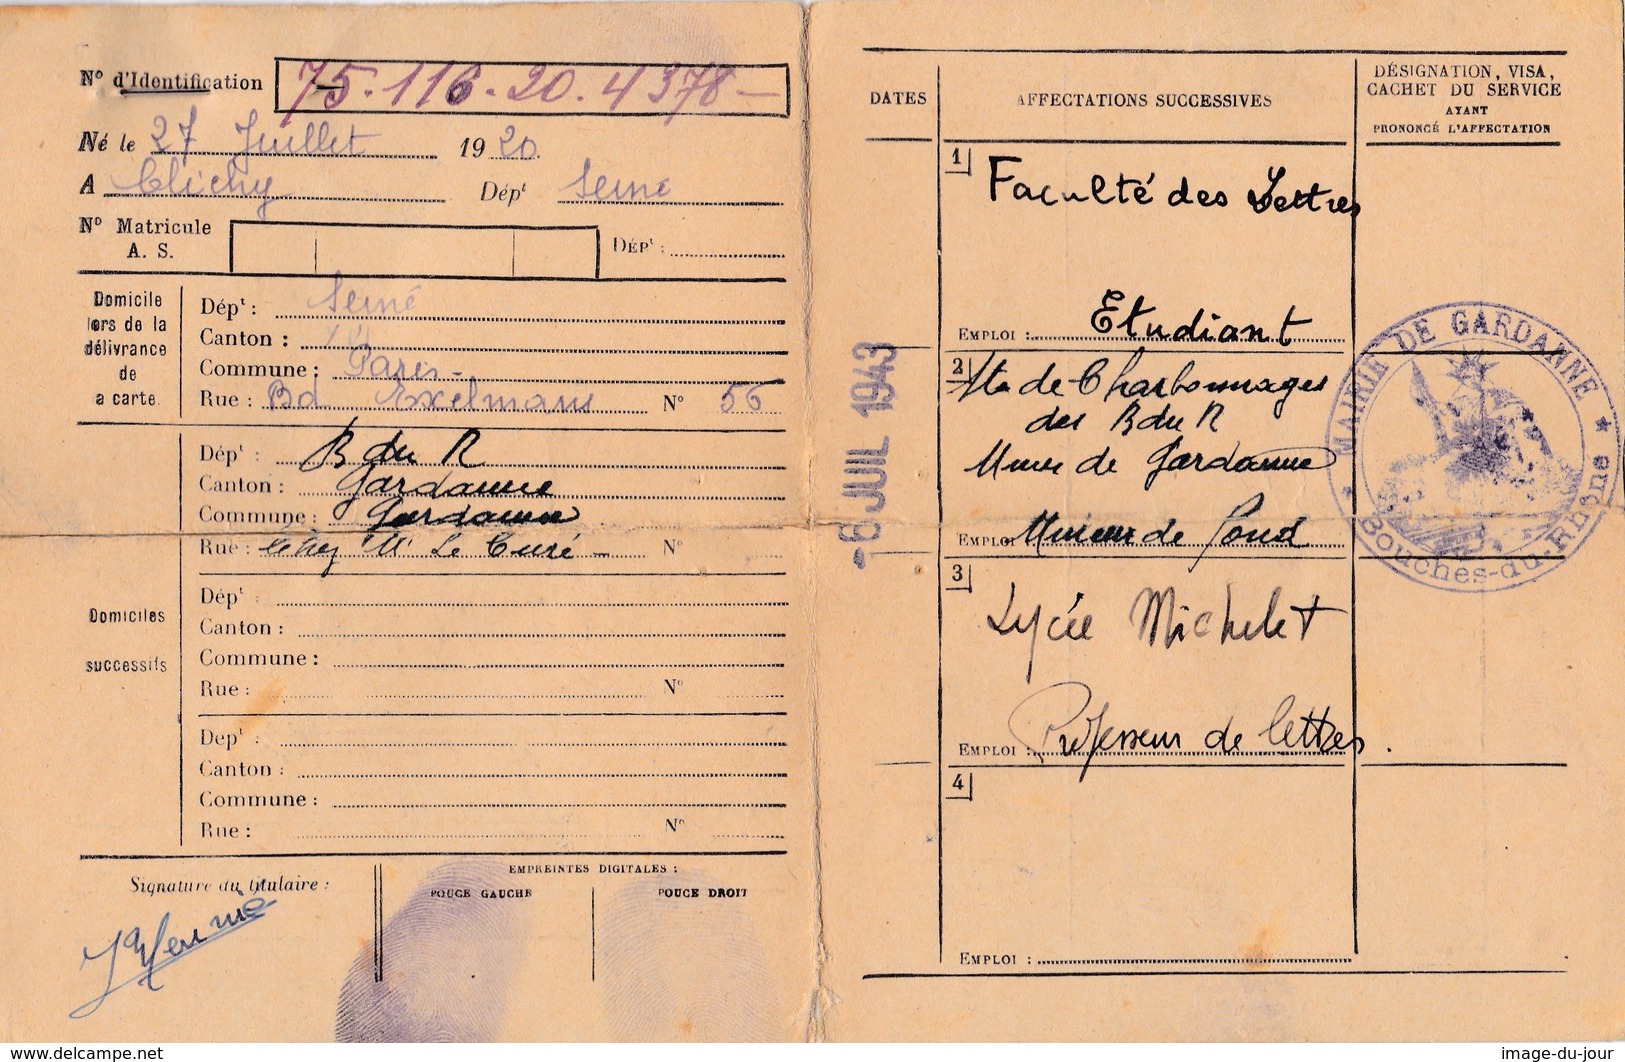 N° d'Identification 75.116.20.4378 —
Né le 27 Juillet 1920.
A Clichy Dépt Seine
N° Matricule
A. S.
DÉPt :
Domicile
lors de la
délivrance
de
la carte
Dépt : Seine
Canton :
Commune : Paris -
Rue : Bd Exelmans N° 56
Domiciles
successifs
Dépt : B du R
Canton : Gardanne
Commune : Gardanne
Rue : chez Mr Le Curé — N°
Dépt :
Canton :
Commune :
Rue : N°
Dépt :
Canton :
Commune :
Rue : N°
Signature du titulaire :
EMPREINTES DIGITALES :
POUCE GAUCHE
POUCE DROIT
DATES
AFFECTATIONS SUCCESSIVES
DÉSIGNATION, VISA,
CACHET DU SERVICE
AYANT
PRONONCÉ L'AFFECTATION
1
Faculté des Lettres
EMPLOI : Etudiant
- 6 JUIL 1943
2
Sté de Charbonnages
des B du R
Mines de Gardanne
EMPLOI Mineur de fond
MAIRIE DE GARDANNE
* Bouches-du-Rhône *
3
Lycée Michelet
EMPLOI : Professeur de lettres.
4
EMPLOI :
www.delcampe.net
image-du-jour